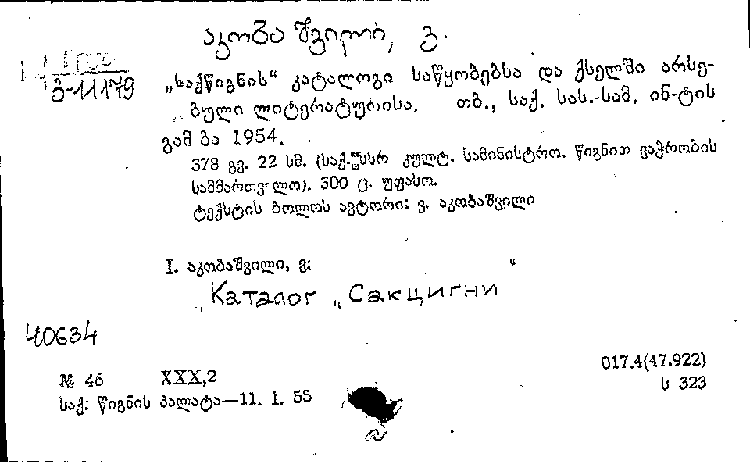 აკობაშვილი, ვ.
3-11179
„საქწიგნის“ კატალოგი საწყობებსა და ქსელში არსე-
ბული ლიტერატურისა. თბ., საქ. სას.-სამ. ინ-ტის
გამ ბა 1954.
378 გვ. 22 სმ. (საქ. სსრ კულტ. სამინისტრო. წიგნით ვაჭრობის
სამმართველო). 300 ც. უფასო.
ტექსტის ბოლოს ავტორი: ვ. აკობაშვილი
I. აკობაშვილი, ვ.
Каталог „Сакцигни“
40634
№ 46 XXX,2
017.4(47.922)
ს 323
საქ. წიგნის პალატა—11. I. 55